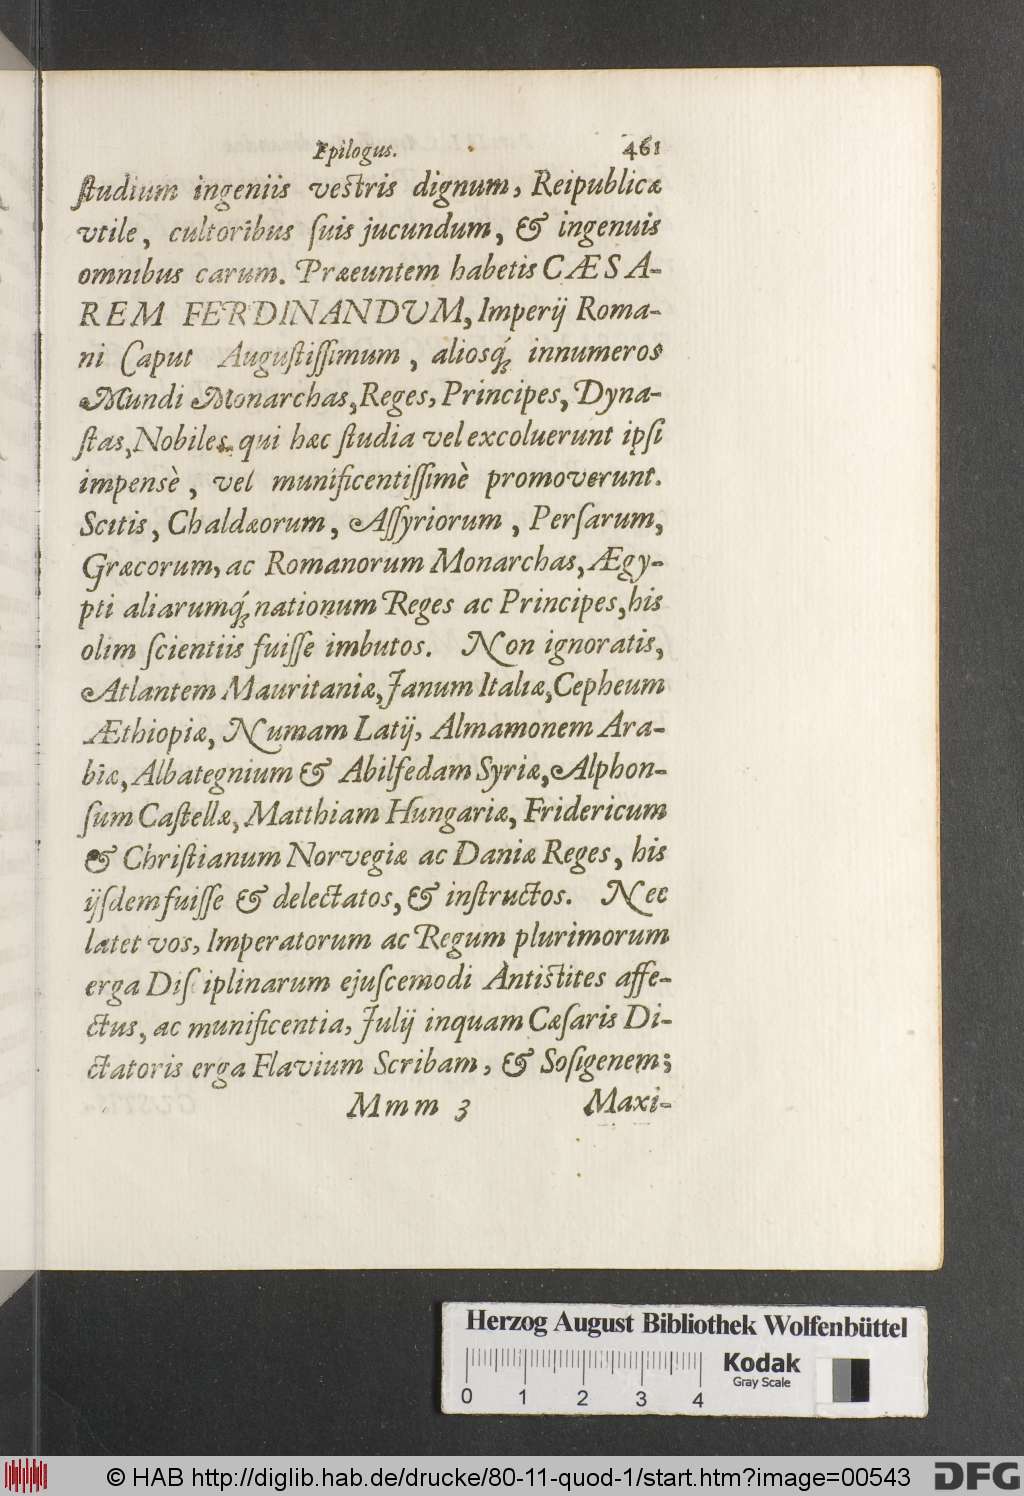 Epilogus. 461
ſtudium ingeniis veſtris dignum, Reipublicæ
vtile, cultoribus ſuis jucundum, & ingenuis
omnibus carum. Præeuntem habetis CÆSA-
REM FERDINANDVM, Imperij Roma-
ni Caput Auguſtiſſimum, aliosq́; innumeros
Mundi Monarchas, Reges, Principes, Dyna-
ſtas, Nobiles qui hæc ſtudia vel excoluerunt ipſi
impensè, vel munificentiſſimè promoverunt.
Scitis, Chaldæorum, Aſſyriorum, Perſarum,
Græcorum, ac Romanorum Monarchas, Ægy-
pti aliarumq́; nationum Reges ac Principes, his
olim ſcientiis fuiſſe imbutos. Non ignoratis,
Atlantem Mauritaniæ, Janum Italiæ, Cepheum
Æthiopiæ, Numam Latij, Almamonem Ara-
biæ, Albategnium & Abilfedam Syriæ, Alphon-
ſum Caſtellæ, Matthiam Hungariæ, Fridericum
& Chriſtianum Norvegiæ ac Daniæ Reges, his
ijſdem fuiſſe & delectatos, & inſtructos. Nec
latet vos, Imperatorum ac Regum plurimorum
erga Diſciplinarum ejuſcemodi Antiſtites affe-
ctus, ac munificentia, Julij inquam Cæſaris Di-
ctatoris erga Flavium Scribam, & Soſigenem;
Mmm 3 Maxi-
Herzog August Bibliothek Wolfenbüttel
Kodak
Gray Scale
0 1 2 3 4
© HAB http://diglib.hab.de/drucke/80-11-quod-1/start.htm?image=00543 DFG